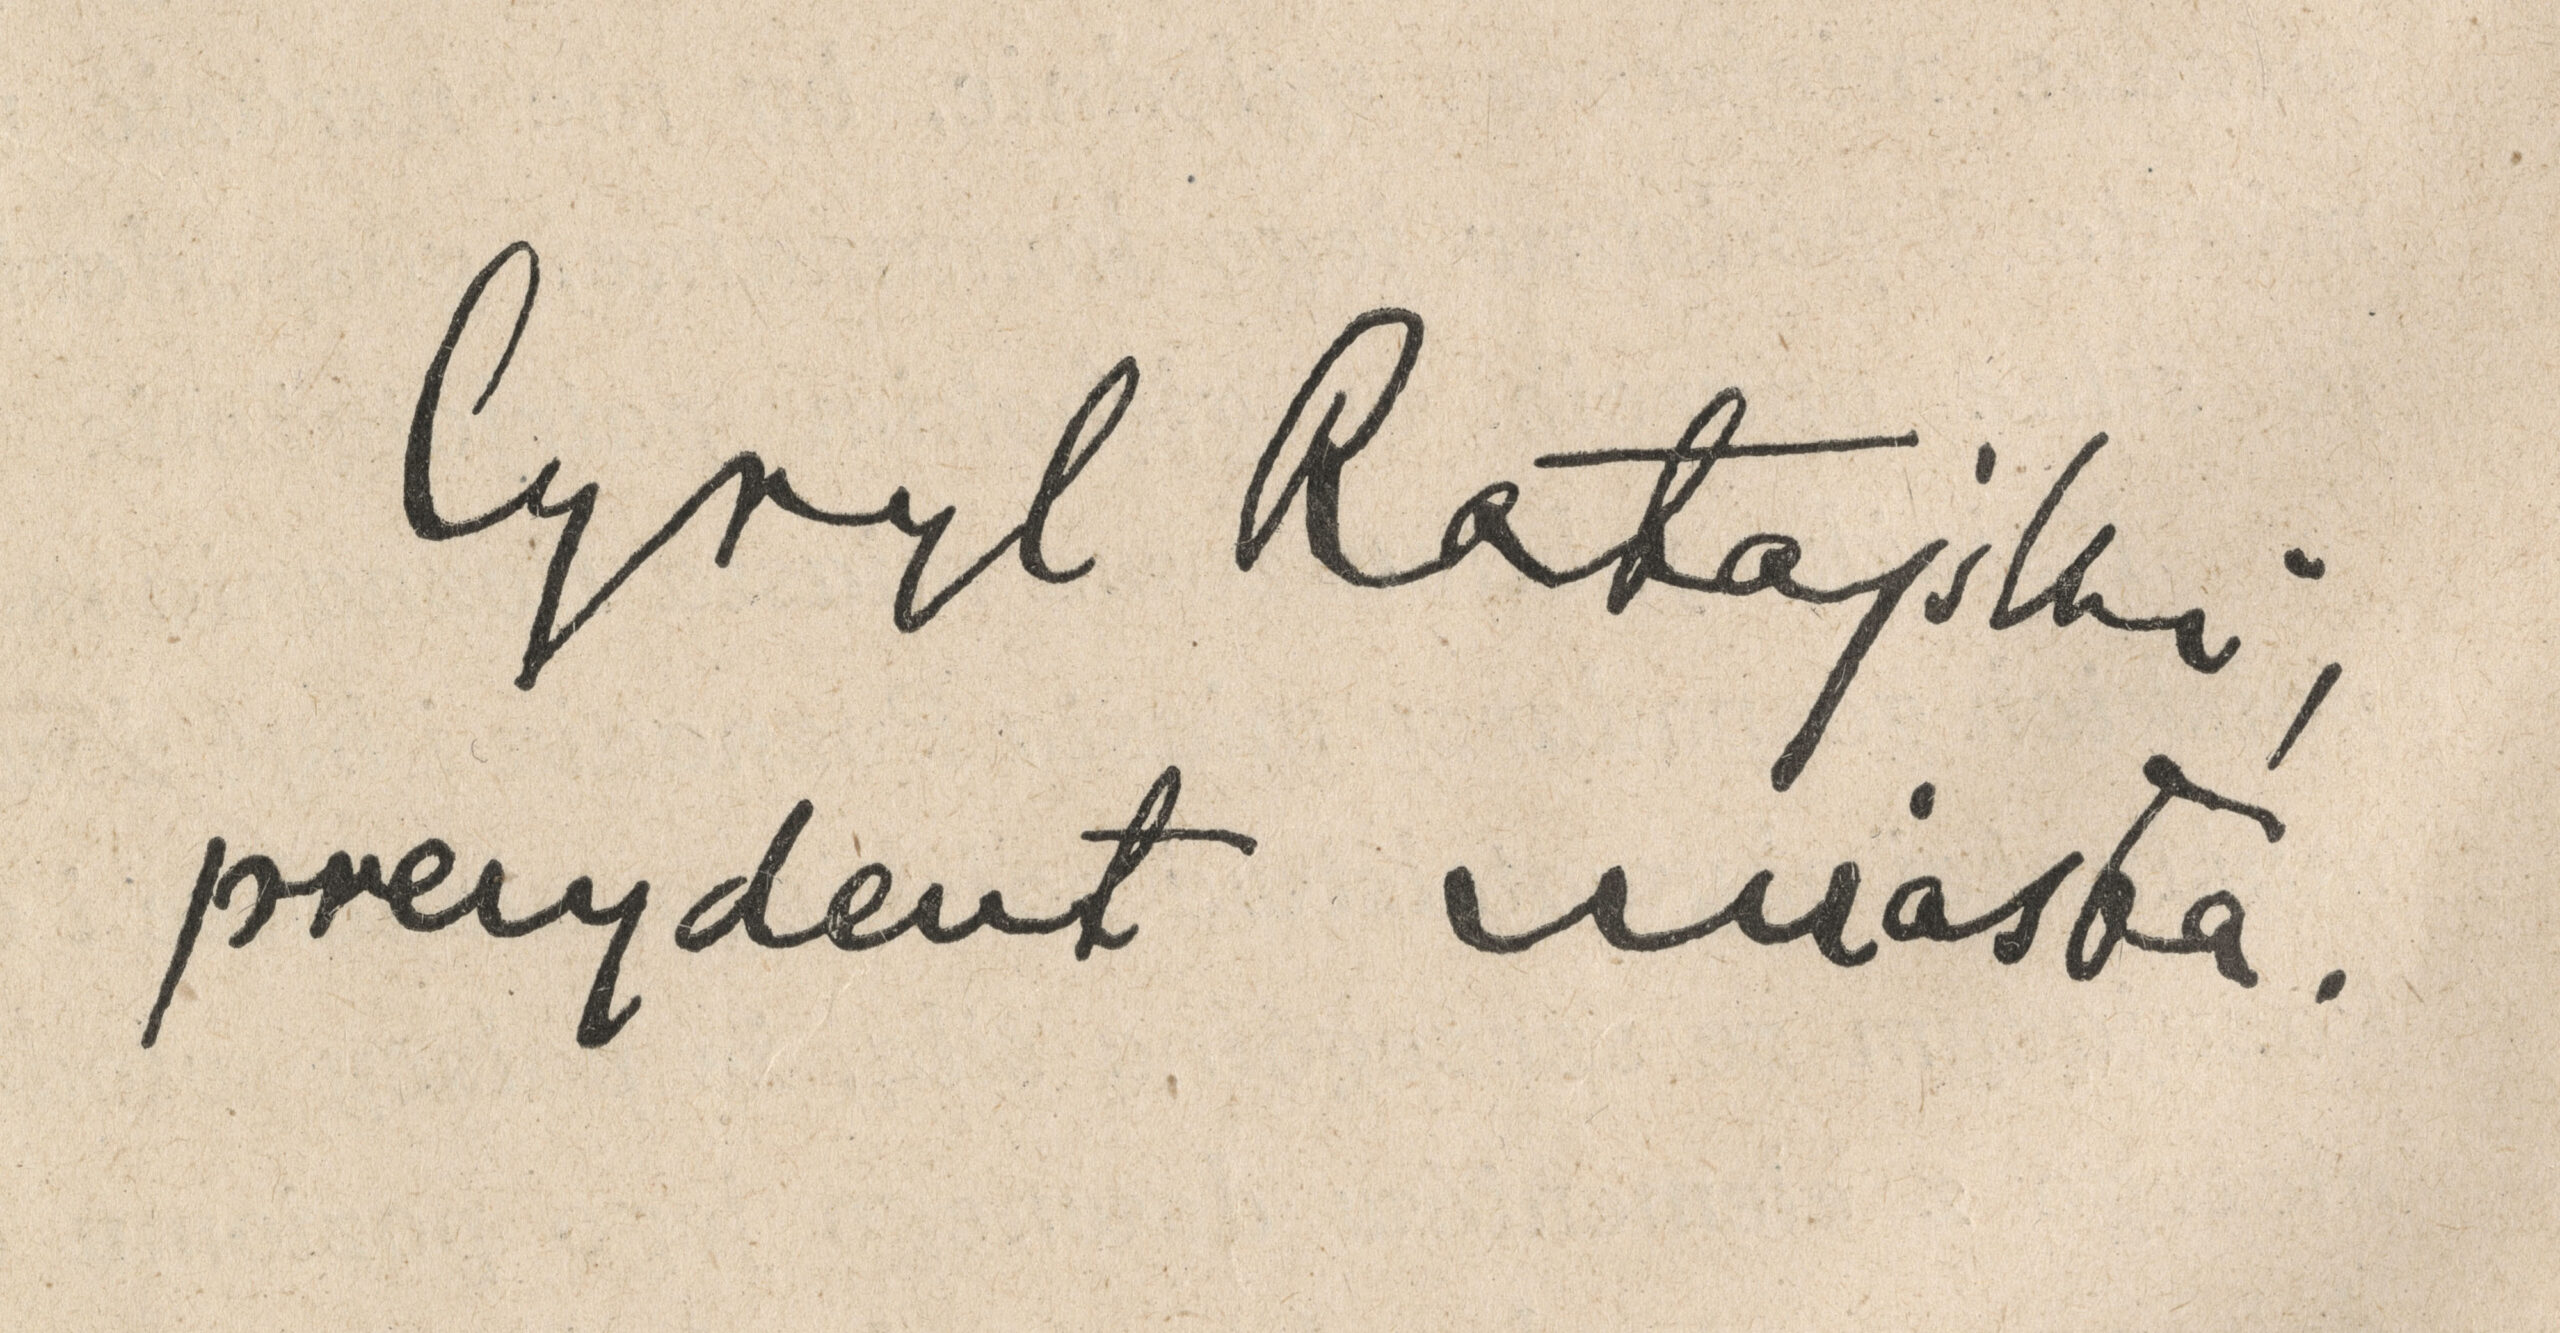 Cyryl Ratajski,
prezydent miasta.